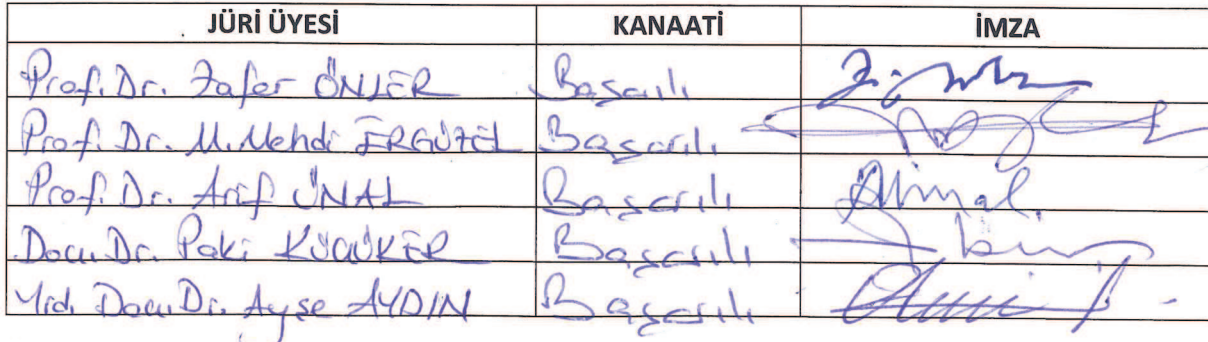 JÜRİ ÜYESİ KANAATİ İMZA
Prof. Dr. Zafer ÖNLER Başarılı
Prof. Dr. M. Mehdi ERGÜZEL Başarılı
Prof. Dr. Arif ÜNAL Başarılı
Doç. Dr. Paki KÜÇÜKER Başarılı
Yrd. Doç. Dr. Ayşe AYDIN Başarılı